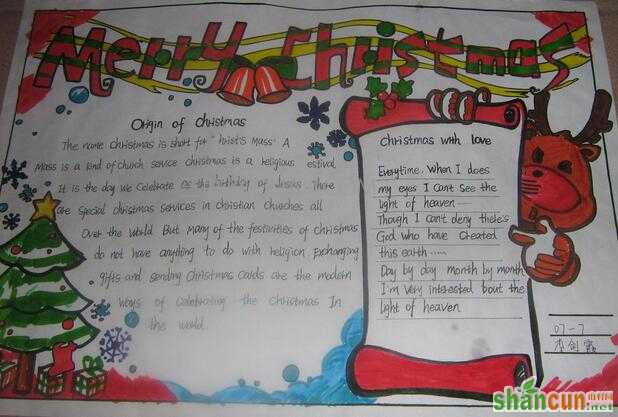 Merry Christmas
Origin of christmas
The name christmas is short for "hrist's Mass" A
Mass is a kind of church service christmas is a religious estival
It is the day we celebrate as the birthday of Jesus. There
are special christmas services in christian churches all
Over the world But many of the festivities of christmas
do not have anything to do with religion Exchanging
gifts and sending Christmas Cards are the modern
ways of celebrating the Christmas In
the world.
christmas with love
Everytime. When I does
my eyes I can't see the
light of heaven
Though I can't deny there's
God who have created
this earth ......
Day by day month by month
I'm very interested bout the
light of heaven
07-7
shancun
.net